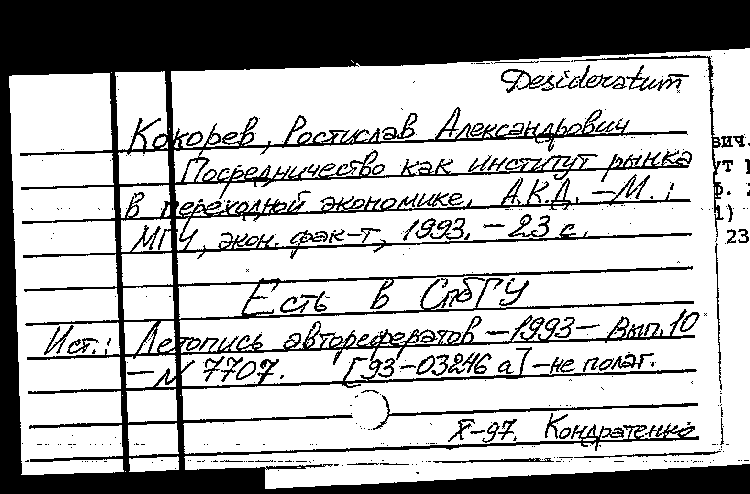 Desideratum
Кокорев, Ростислав Александрович
Посредничество как институт рынка
в переходной экономике. А.К.Д. – М.:
МГУ, экон. фак-т, 1993. – 23 с.
Есть в СпбГУ
Ист.: Летопись авторефератов – 1993 – Вып. 10
– N 7707. [93-03246 а] – не полаг.
X-97. Кондратенко
вич.
ут р
ф. 2
1)
23